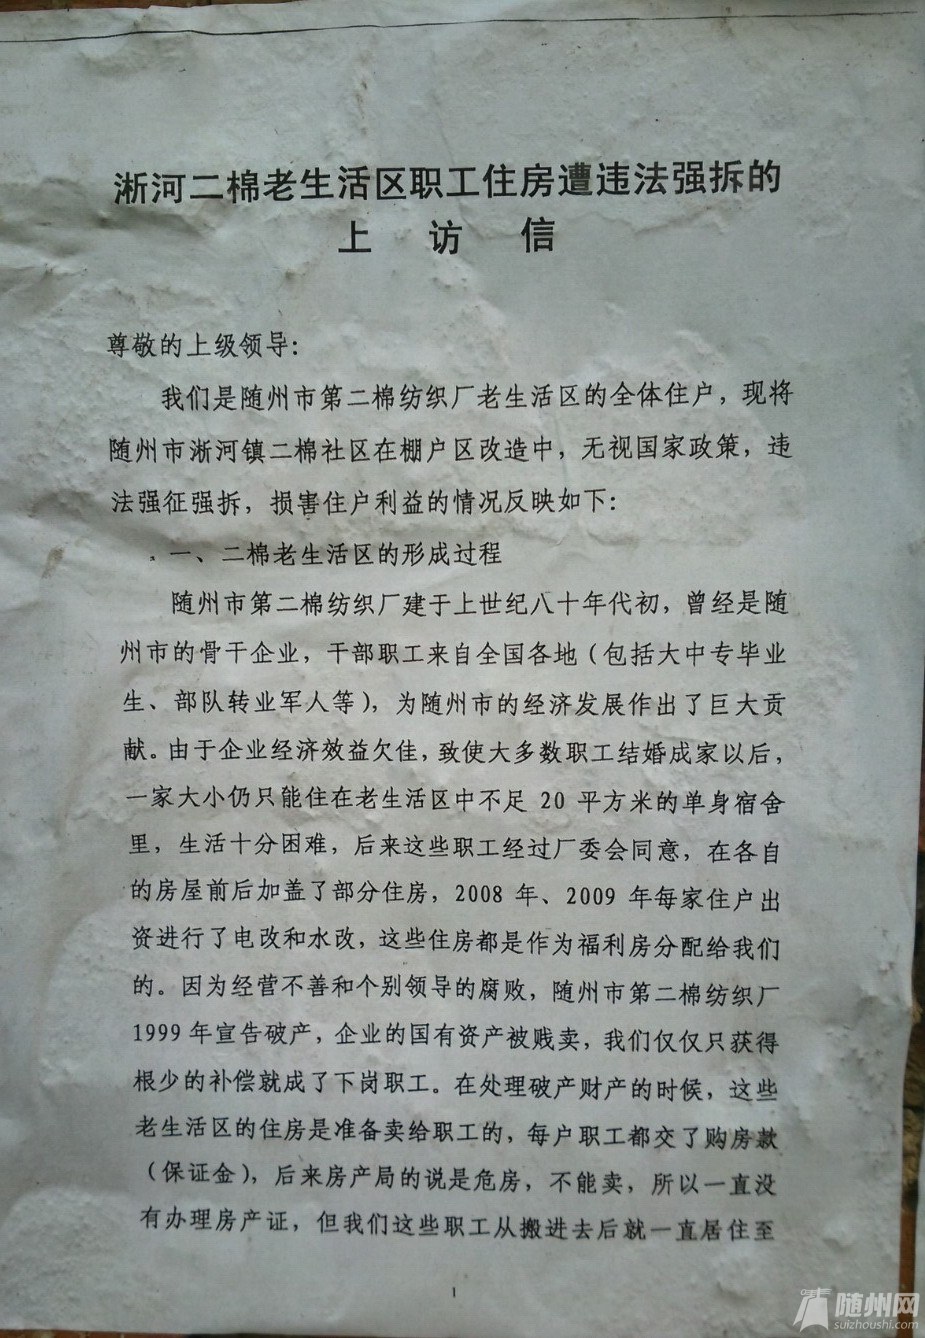 淅河二棉老生活区职工住房遭违法强拆的
上 访 信
尊敬的上级领导：
我们是随州市第二棉纺织厂老生活区的全体住户，现将
随州市淅河镇二棉社区在棚户区改造中，无视国家政策，违
法强征强拆，损害住户利益的情况反映如下：
一、二棉老生活区的形成过程
随州市第二棉纺织厂建于上世纪八十年代初，曾经是随
州市的骨干企业，干部职工来自全国各地（包括大中专毕业
生、部队转业军人等），为随州市的经济发展作出了巨大贡
献。由于企业经济效益欠佳，致使大多数职工结婚成家以后，
一家大小仍只能住在老生活区中不足 20 平方米的单身宿舍
里，生活十分困难，后来这些职工经过厂委会同意，在各自
的房屋前后加盖了部分住房，2008 年、2009 年每家住户出
资进行了电改和水改，这些住房都是作为福利房分配给我们
的。因为经营不善和个别领导的腐败，随州市第二棉纺织厂
1999 年宣告破产，企业的国有资产被贱卖，我们仅仅只获得
根少的补偿就成了下岗职工。在处理破产财产的时候，这些
老生活区的住房是准备卖给职工的，每户职工都交了购房款
（保证金），后来房产局的说是危房，不能卖，所以一直没
有办理房产证，但我们这些职工从搬进去后就一直居住至
1
随州网
suizhoushi.com